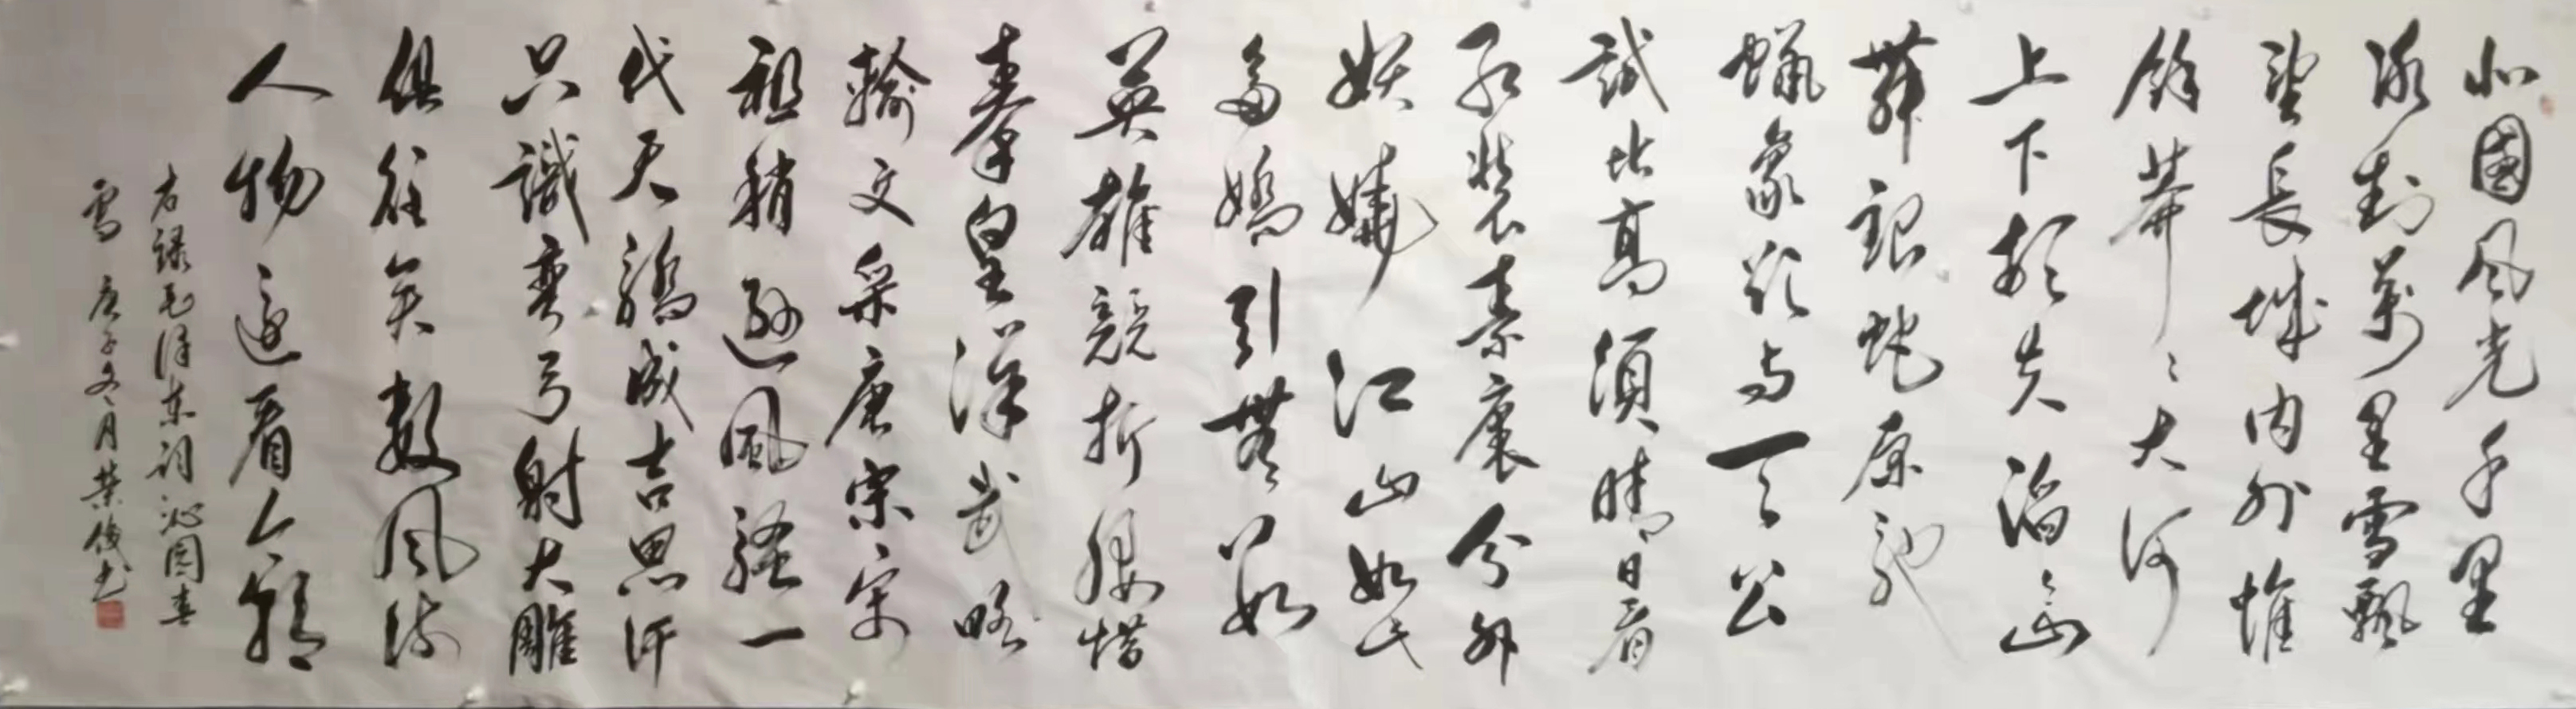 北國风光千里
冰封萬里雪飘
望長城内外惟
餘莽〻大河
上下顿失滔〻山
舞银蛇原驰
蠟象欲与天公
試比高須晴日看
红装素裹分外
妖嬈江山如此
多嬌引無数
英雄競折腰惜
秦皇漢武略
輸文采唐宗宋
祖稍遜風騷一
代天骄成吉思汗
只識弯弓射大雕
俱往矣数风流
人物还看今朝
右録毛泽东词沁园春
雪 庚子冬月荣俊书